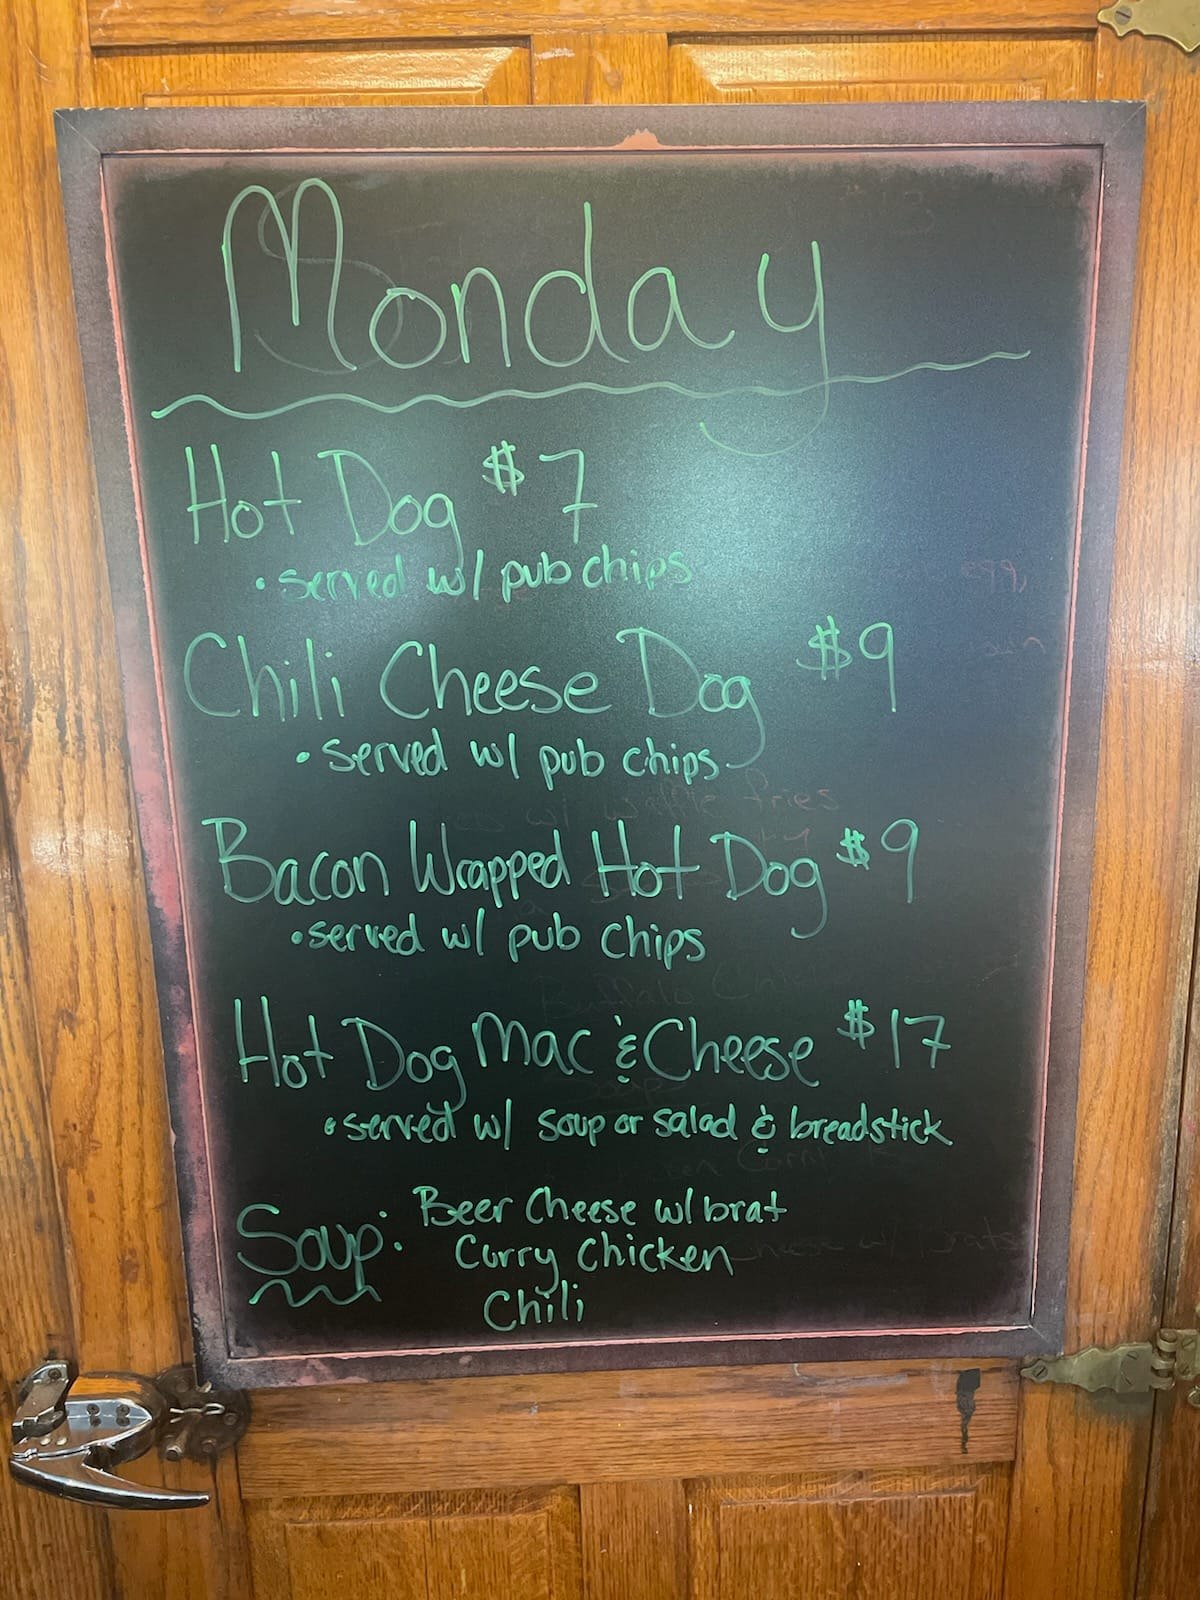 Monday
Hot Dog $7
• served w/ pub chips
Chili Cheese Dog $9
• served w/ pub chips
Bacon Wrapped Hot Dog $9
• served w/ pub chips
Hot Dog Mac & Cheese $17
• served w/ soup or salad & breadstick
Soup: Beer Cheese w/ brat
Curry Chicken
Chili